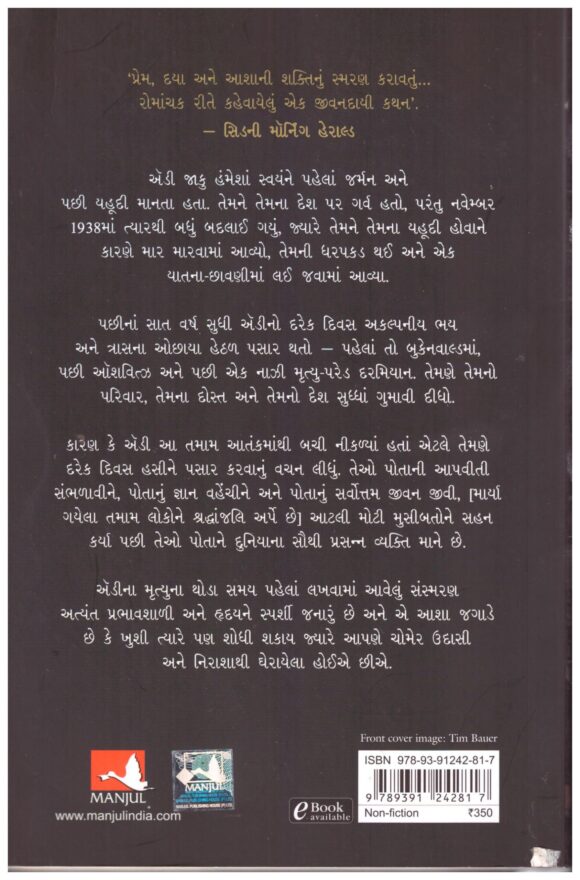 ‘પ્રેમ, દયા અને આશાની શક્તિનું સ્મરણ કરાવતું...
રોમાંચક રીતે કહેવાયેલું એક જીવનદાયી કથન’.
— સિડની મૉર્નિંગ હેરાલ્ડ
ઍડી જાકુ હંમેશાં સ્વયંને પહેલાં જર્મન અને
પછી યહૂદી માનતા હતા. તેમને તેમના દેશ પર ગર્વ હતો, પરંતુ નવેમ્બર
1938માં ત્યારથી બધું બદલાઈ ગયું, જ્યારે તેમને તેમના યહૂદી હોવાને
કારણે માર મારવામાં આવ્યો, તેમની ધરપકડ થઈ અને એક
યાતના-છાવણીમાં લઈ જવામાં આવ્યા.
પછીનાં સાત વર્ષ સુધી ઍડીનો દરેક દિવસ અકલ્પનીય ભય
અને ત્રાસના ઓછાયા હેઠળ પસાર થતો — પહેલાં તો બુકેનવાલ્ડમાં,
પછી ઑશવિત્ઝ અને પછી એક નાઝી મૃત્યુ-પરેડ દરમિયાન. તેમણે તેમનો
પરિવાર, તેમના દોસ્ત અને તેમનો દેશ સુધ્ધાં ગુમાવી દીધો.
કારણ કે ઍડી આ તમામ આતંકમાંથી બચી નીકળ્યાં હતાં એટલે તેમણે
દરેક દિવસ હસીને પસાર કરવાનું વચન લીધું. તેઓ પોતાની આપવીતી
સંભળાવીને, પોતાનું જ્ઞાન વહેંચીને અને પોતાનું સર્વોત્તમ જીવન જીવી, [માર્યા
ગયેલા તમામ લોકોને શ્રદ્ધાંજલિ અર્પે છે] આટલી મોટી મુસીબતોને સહન
કર્યા પછી તેઓ પોતાને દુનિયાના સૌથી પ્રસન્ન વ્યક્તિ માને છે.
ઍડીના મૃત્યુના થોડા સમય પહેલાં લખવામાં આવેલું સંસ્મરણ
અત્યંત પ્રભાવશાળી અને હૃદયને સ્પર્શી જનારું છે અને એ આશા જગાડે
છે કે ખુશી ત્યારે પણ શોધી શકાય જ્યારે આપણે ચોમેર ઉદાસી
અને નિરાશાથી ઘેરાયેલા હોઈએ છીએ.
Front cover image: Tim Bauer
MANJUL
www.manjulindia.com
MANJUL
eBook
available
ISBN 978-93-91242-81-7
9 789391 242817
Non-fiction ₹350